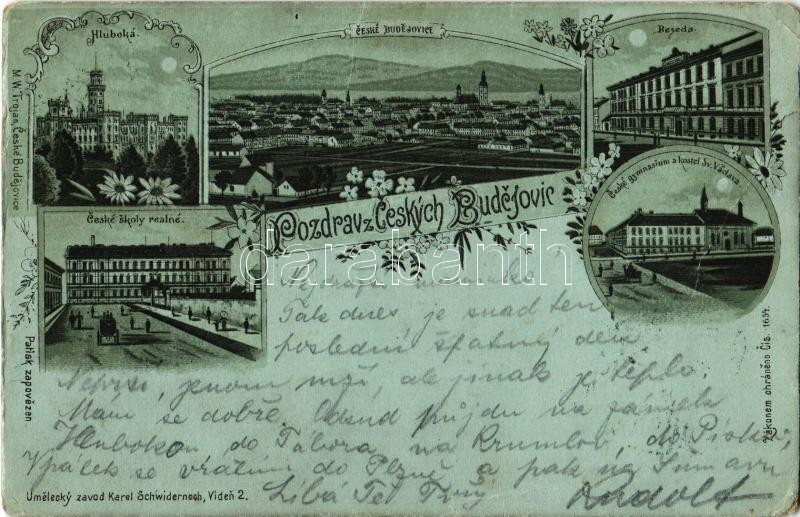 Hluboká.
ČESKÉ BUDĚJOVICE
Beseda.
České gymnasium a kostel Sv. Václava.
České školy realné.
Pozdrav z Českých Budějovic
darabanth
M.W. Trojan, České Budějovice
Patisk zapovězen.
Zákonem chráněno Čís. 1654.
maminko!
Tak dnes je snad ten
poslední špatný den
Neprší, jenom mží, ale jinak je teplo.
Mám se dobře. Odsud půjdu na zámek
Hlubokou do Tábora, na Krumlov, do Písku,
Zpátek se vrátím do Plzně a pak na Šumavu
Líbá Tě Tvůj Rudolf
Umělecký zavod Karel Schwidernoch, Videň 2.